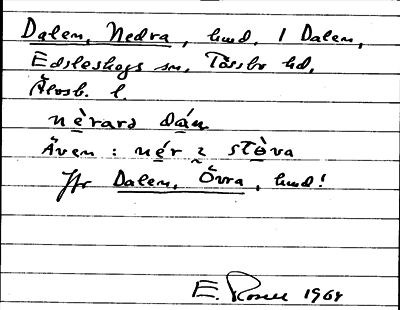 Dalen, Nedra, hmd. 1 Dalen,
Edsleskogs sn, Tössbo hd,
Älvsb. l.
nèrara dán
Även: nér 2 stòva
Jfr Dalen, Övra, hmd!
E. Rosell 1964